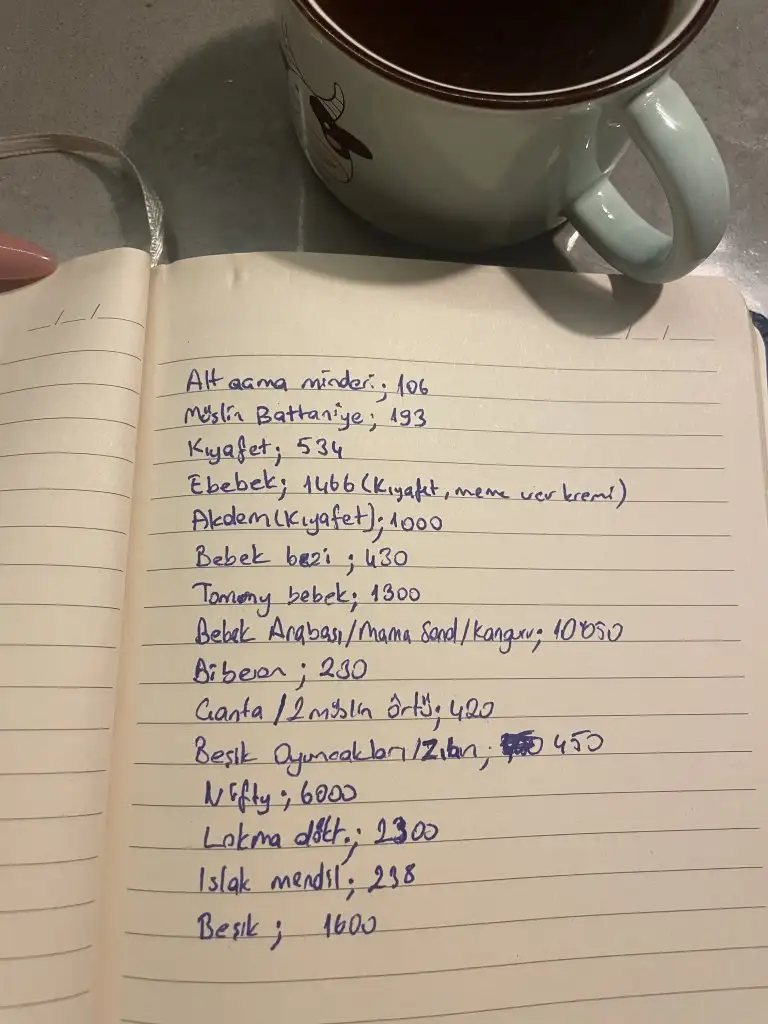 Alt açma minderi; 106
Müslin Battaniye; 193
Kıyafet; 534
Ebebek; 1466 (Kıyafet, meme ucu kremi)
Akdem (Kıyafet); 1000
Bebek bezi; 430
Tommy bebek; 1300
Bebek Arabası/Mama Sand/Kanguru; 10'050
Biberon; 230
Çanta / 2 müslin örtü; 420
Beşik Oyuncakları/Zıbın; 450
Nifty; 6000
Lokma dökt.; 2300
Islak mendil; 238
Beşik; 1600